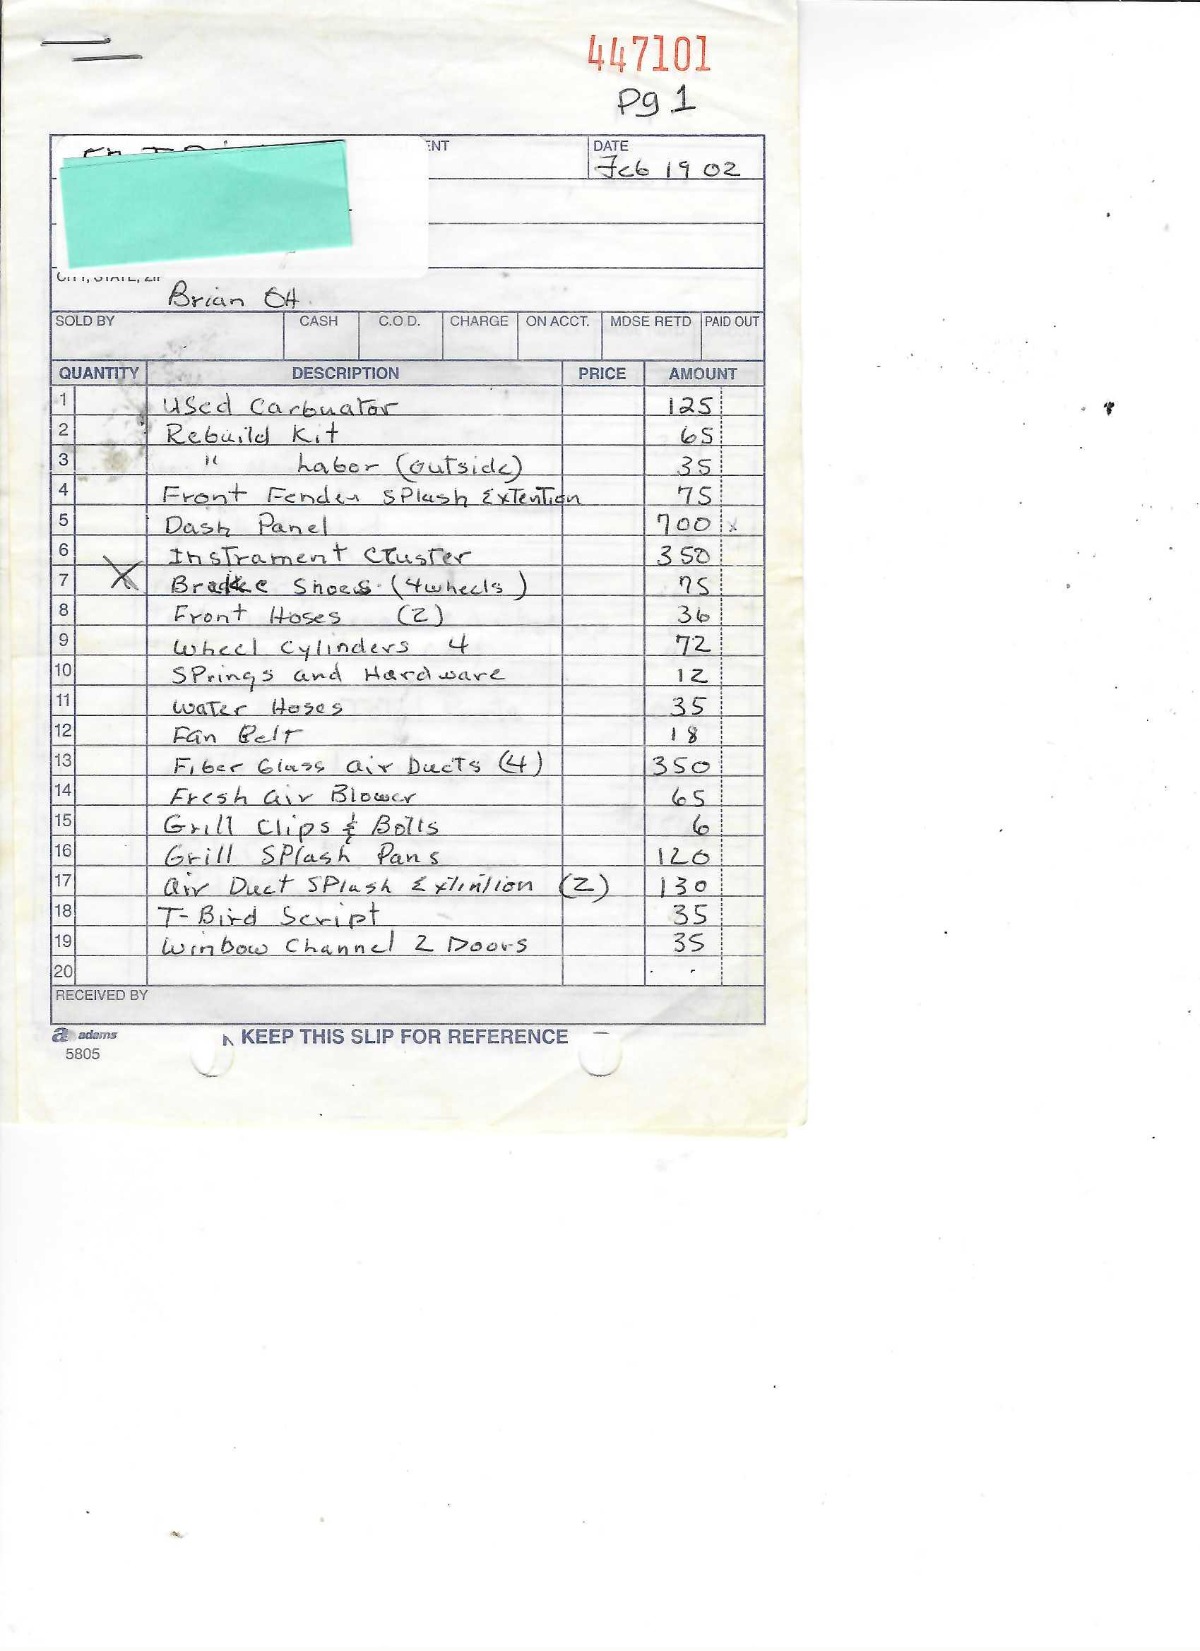 447101
Pg 1
DATE
Feb 19 02
Brian OH
SOLD BY CASH C.O.D. CHARGE ON ACCT. MDSE RETD PAID OUT
QUANTITY DESCRIPTION PRICE AMOUNT
1 Used Carbuator 125
2 Rebuild Kit 65
3 " Labor (outside) 35
4 Front Fender SPlash ExTention 75
5 Dash Panel 700 x
6 InsTrament CLusTer 350
7 X Brakke Shoes (4wheels) 75
8 Front Hoses (2) 36
9 Wheel Cylinders 4 72
10 SPrings and Hardware 12
11 WaTer Hoses 35
12 Fan BelT 18
13 Fiber Glass air DucTs (4) 350
14 Fresh air Blower 65
15 Grill Clips & Bolts 6
16 Grill SPlash Pans 120
17 air Duct SPlash Extintion (2) 130
18 T-Bird Script 35
19 Winbow Channel 2 Doors 35
20
RECEIVED BY
adams
5805
KEEP THIS SLIP FOR REFERENCE